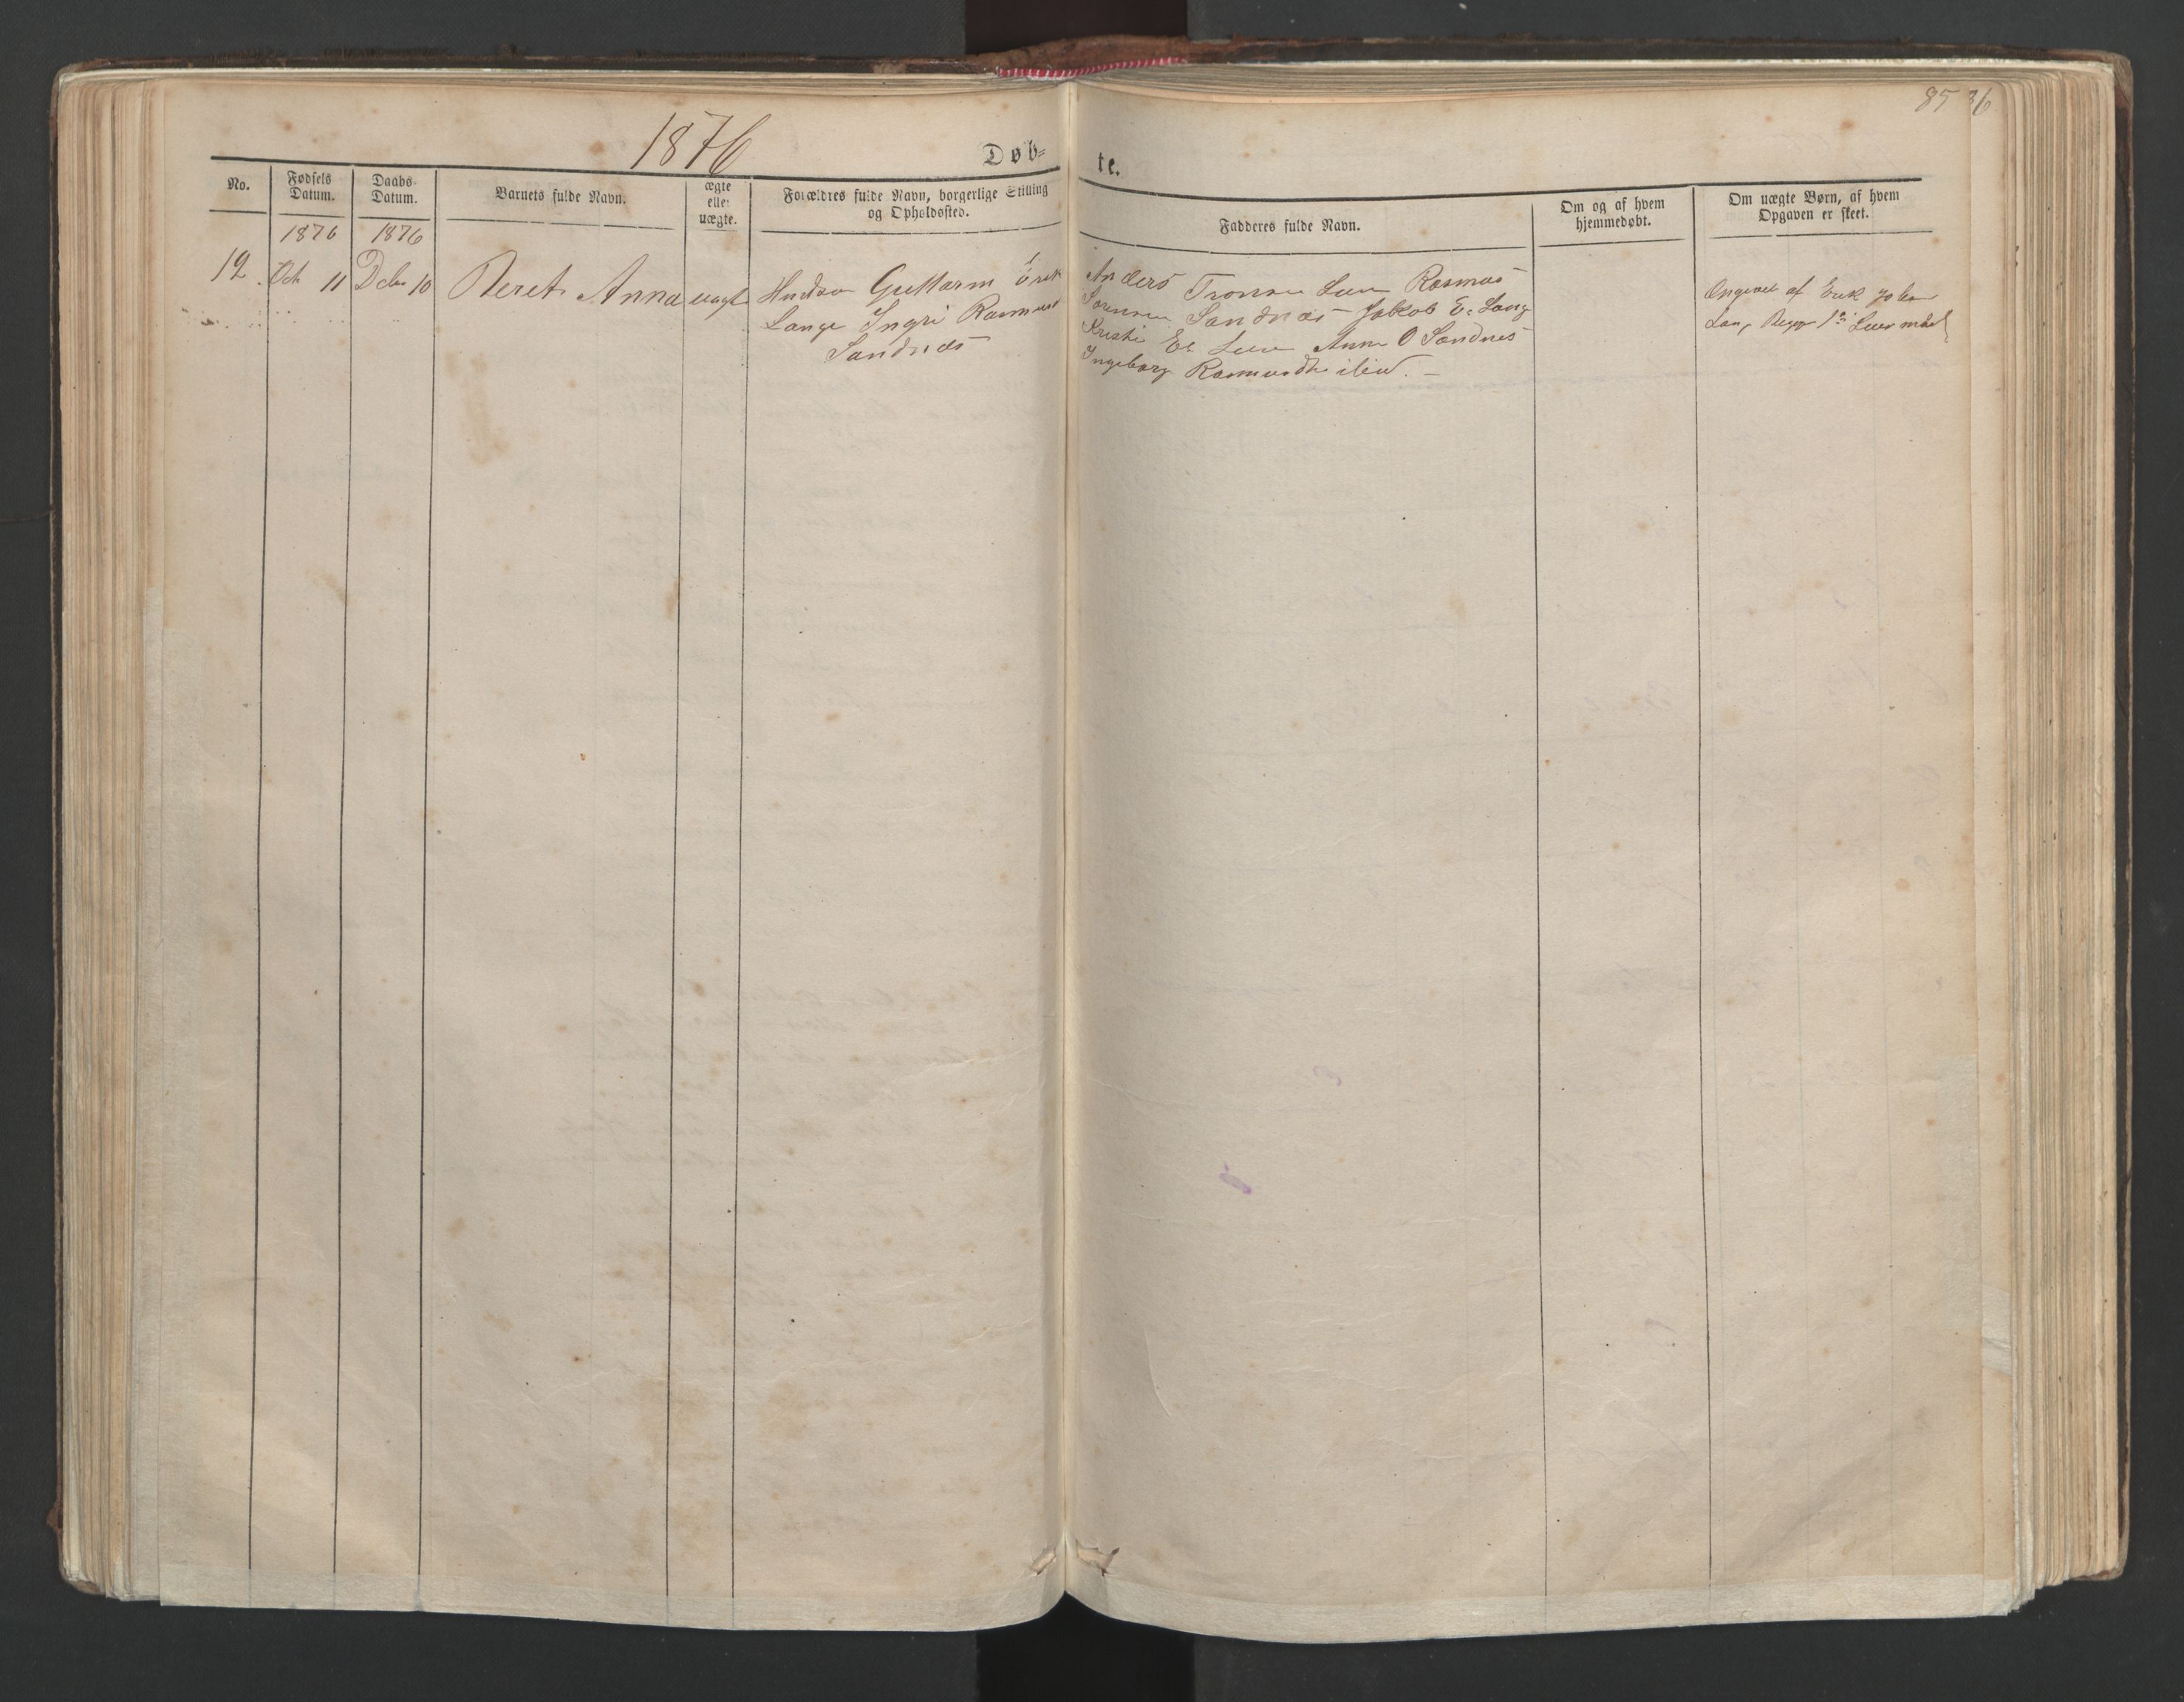 1876
85 86
Døb=
te.
No.
Fødsels
Datum.
Daabs-
Datum.
Barnets fulde Navn.
ægte
eller
uægte.
Forældres fulde Navn, borgerlige Stilling
og Opholdssted.
Fadderes fulde Navn.
Om og af hvem
hjemmedøbt.
Om uægte Børn, af hvem
Opgaven er skeet.
1876
1876
12.
Oct 11
Decbr 10
Beret Anna
uægt
Guttorm
Lange Ingri Rasmusd
Sandnæs
Anders Tronsen Rasmus
Sørensen Sandnæs Jakob E. Lang
Kristi Anne O Sandnes
Ingeborg Rasmusdtr ibid. —
Angivet af Erik